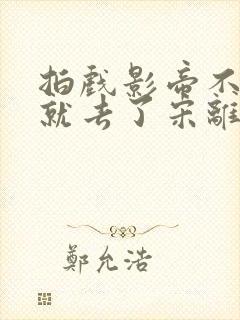 拍戲影帝不
就去了宋離
鄭允浩